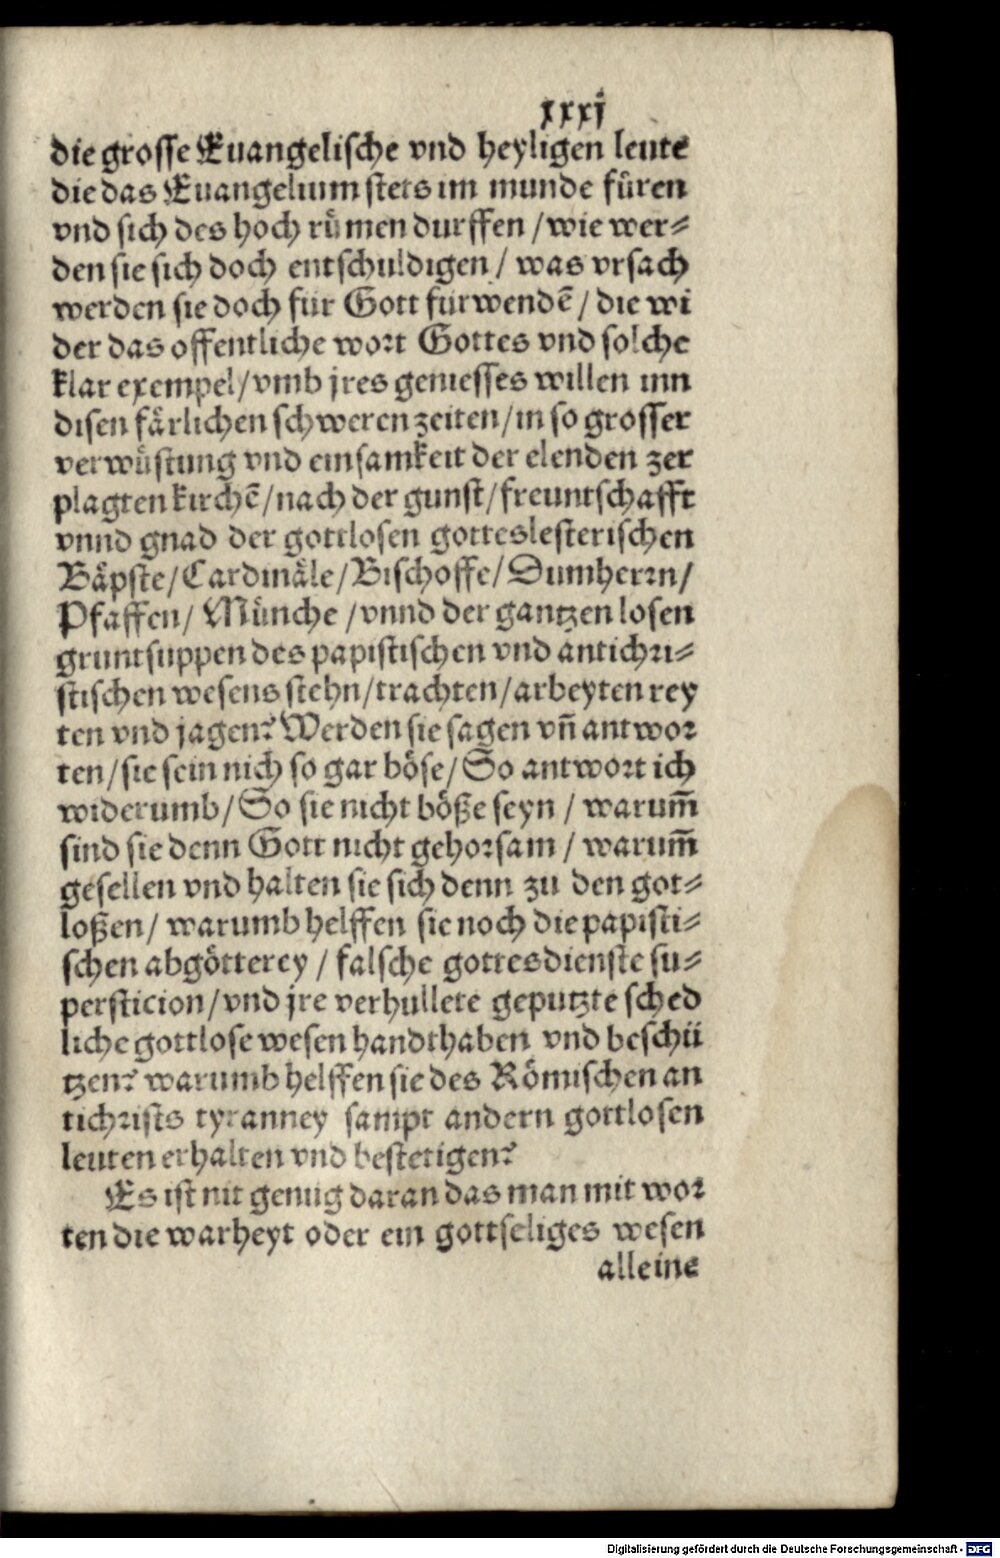 xxxj
die grosse Euangelische vnd heyligen leute
die das Euangelium stets im munde füren
vnd sich des hoch rümen durffen / wie wer⸗
den sie sich doch entschuldigen / was vrsach
werden sie doch für Gott fürwendē / die wi
der das offentliche wort Gottes vnd solche
klar exempel / vmb jres geniesses willen inn
disen färlichen schweren zeiten / in so grosser
verwüstung vnd einsamkeit der elenden zer
plagten kirchē / nach der gunst / freuntschafft
vnnd gnad der gottlosen gotteslesterischen
Bäpste / Cardinäle / Bischoffe / Dumherrn /
Pfaffen / Münche / vnnd der gantzen losen
gruntsuppen des papistischen vnd antichri⸗
stischen wesens stehn / trachten / arbeyten rey
ten vnd jagen? Werden sie sagen vn̄ antwor
ten / sie sein nich so gar böse / So antwort ich
widerumb / So sie nicht böße seyn / warum̄
sind sie denn Gott nicht gehorsam / warum̄
gesellen vnd halten sie sich denn zu den got⸗
loßen / warumb helffen sie noch die papisti⸗
schen abgötterey / falsche gottesdienste su⸗
persticion / vnd jre verhullete geputzte sched
liche gottlose wesen handthaben vnd beschü
tzen? warumb helffen sie des Römischen an
tichrists tyranney sampt andern gottlosen
leuten erhalten vnd bestetigen?
Es ist nit genug daran das man mit wor
ten die warheyt oder ein gottseliges wesen
alleine
Digitalisierung gefördert durch die Deutsche Forschungsgemeinschaft - DFG